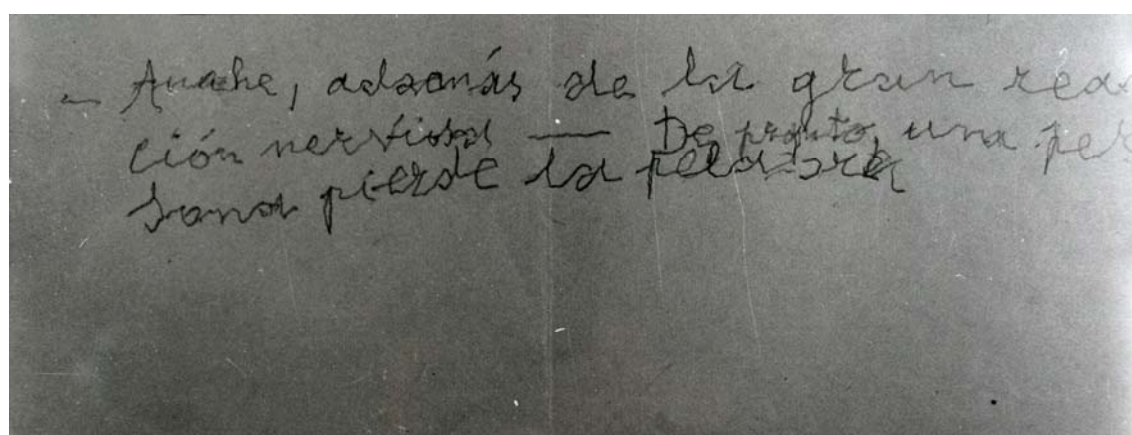 - Anoche, además de la gran reac
ción nerviosa — De pronto, una per
sona pierde la palabra